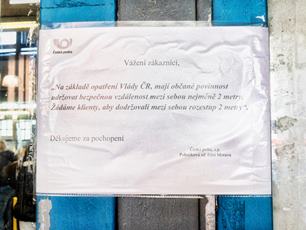 Česká pošta
Vážení zákazníci,
„Na základě opatření Vlády ČR, mají občané povinnost
udržovat bezpečnou vzdálenost mezi sebou nejméně 2 metry.
Žádáme klienty, aby dodržovali mezi sebou rozestup 2 metry“.
Děkujeme za pochopení
Česká pošta, s.p.
Pobočková síť Jižní Morava